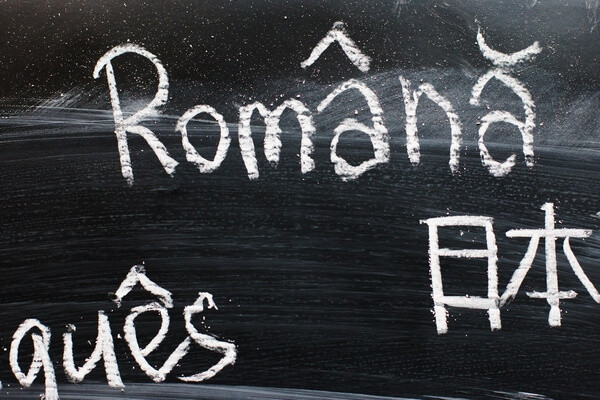 Română
日本
guês